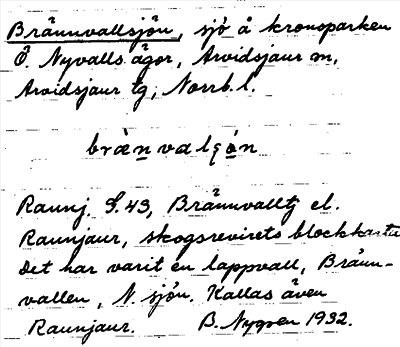 Brännvallsjön, sjö å kronoparken
Ö. Nyvalls ägor, Arvidsjaur sn,
Arvidsjaur tg, Norrb. l.
brä̀nvalʂón
Raunj. G. 43, Brännvalltj el.
Raunjaur, skogsrevirets blockkarta
Det har varit en lappvall, Bränn-
vallen, N. sjön. Kallas även
Raunjaur. B. Nygren 1932.